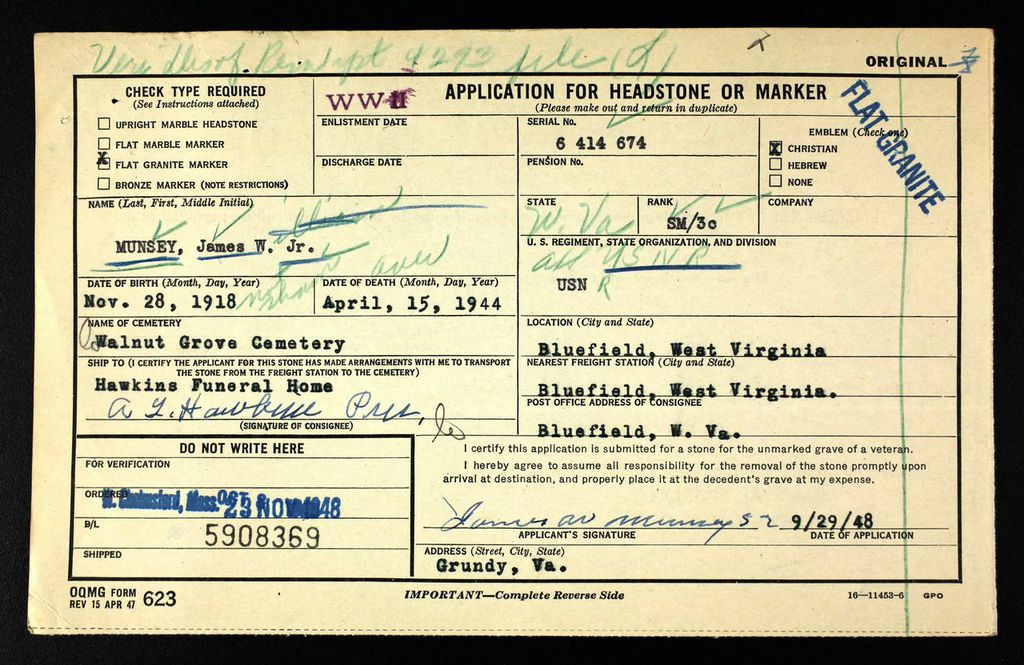 file (L)
ORIGINAL
CHECK TYPE REQUIRED
(See Instructions attached)
UPRIGHT MARBLE HEADSTONE
FLAT MARBLE MARKER
X FLAT GRANITE MARKER
BRONZE MARKER (NOTE RESTRICTIONS)
WW II
APPLICATION FOR HEADSTONE OR MARKER
(Please make out and return in duplicate)
ENLISTMENT DATE
DISCHARGE DATE
SERIAL No.
6 414 674
PENSION No.
EMBLEM (Check one)
X CHRISTIAN
HEBREW
NONE
FLAT GRANITE
NAME (Last, First, Middle Initial)
MUNSEY, James W. Jr.
STATE
W. Va
RANK
SM/3c
COMPANY
U. S. REGIMENT, STATE ORGANIZATION, AND DIVISION
USNR
USN R
DATE OF BIRTH (Month, Day, Year)
Nov. 28, 1918
DATE OF DEATH (Month, Day, Year)
April, 15, 1944
over
NAME OF CEMETERY
Walnut Grove Cemetery
LOCATION (City and State)
Bluefield, West Virginia
SHIP TO (I CERTIFY THE APPLICANT FOR THIS STONE HAS MADE ARRANGEMENTS WITH ME TO TRANSPORT
THE STONE FROM THE FREIGHT STATION TO THE CEMETERY)
Hawkins Funeral Home
NEAREST FREIGHT STATION (City and State)
Bluefield, West Virginia.
(SIGNATURE OF CONSIGNEE)
POST OFFICE ADDRESS OF CONSIGNEE
Bluefield, W. Va.
DO NOT WRITE HERE
FOR VERIFICATION
ORDERED
W. Chelmsford, Mass.
23 NOV 1948
B/L
5908369
SHIPPED
I certify this application is submitted for a stone for the unmarked grave of a veteran.
I hereby agree to assume all responsibility for the removal of the stone promptly upon
arrival at destination, and properly place it at the decedent's grave at my expense.
James W Munsey Sr 9/29/48
APPLICANT'S SIGNATURE
DATE OF APPLICATION
ADDRESS (Street, City, State)
Grundy, Va.
OQMG FORM
REV 15 APR 47 623
IMPORTANT—Complete Reverse Side
16—11453-6 GPO